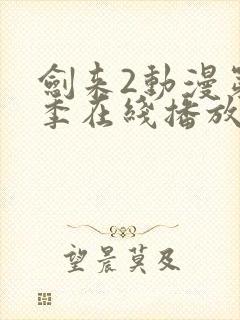 劍来2動漫第
季在綫播放
望晨莫及